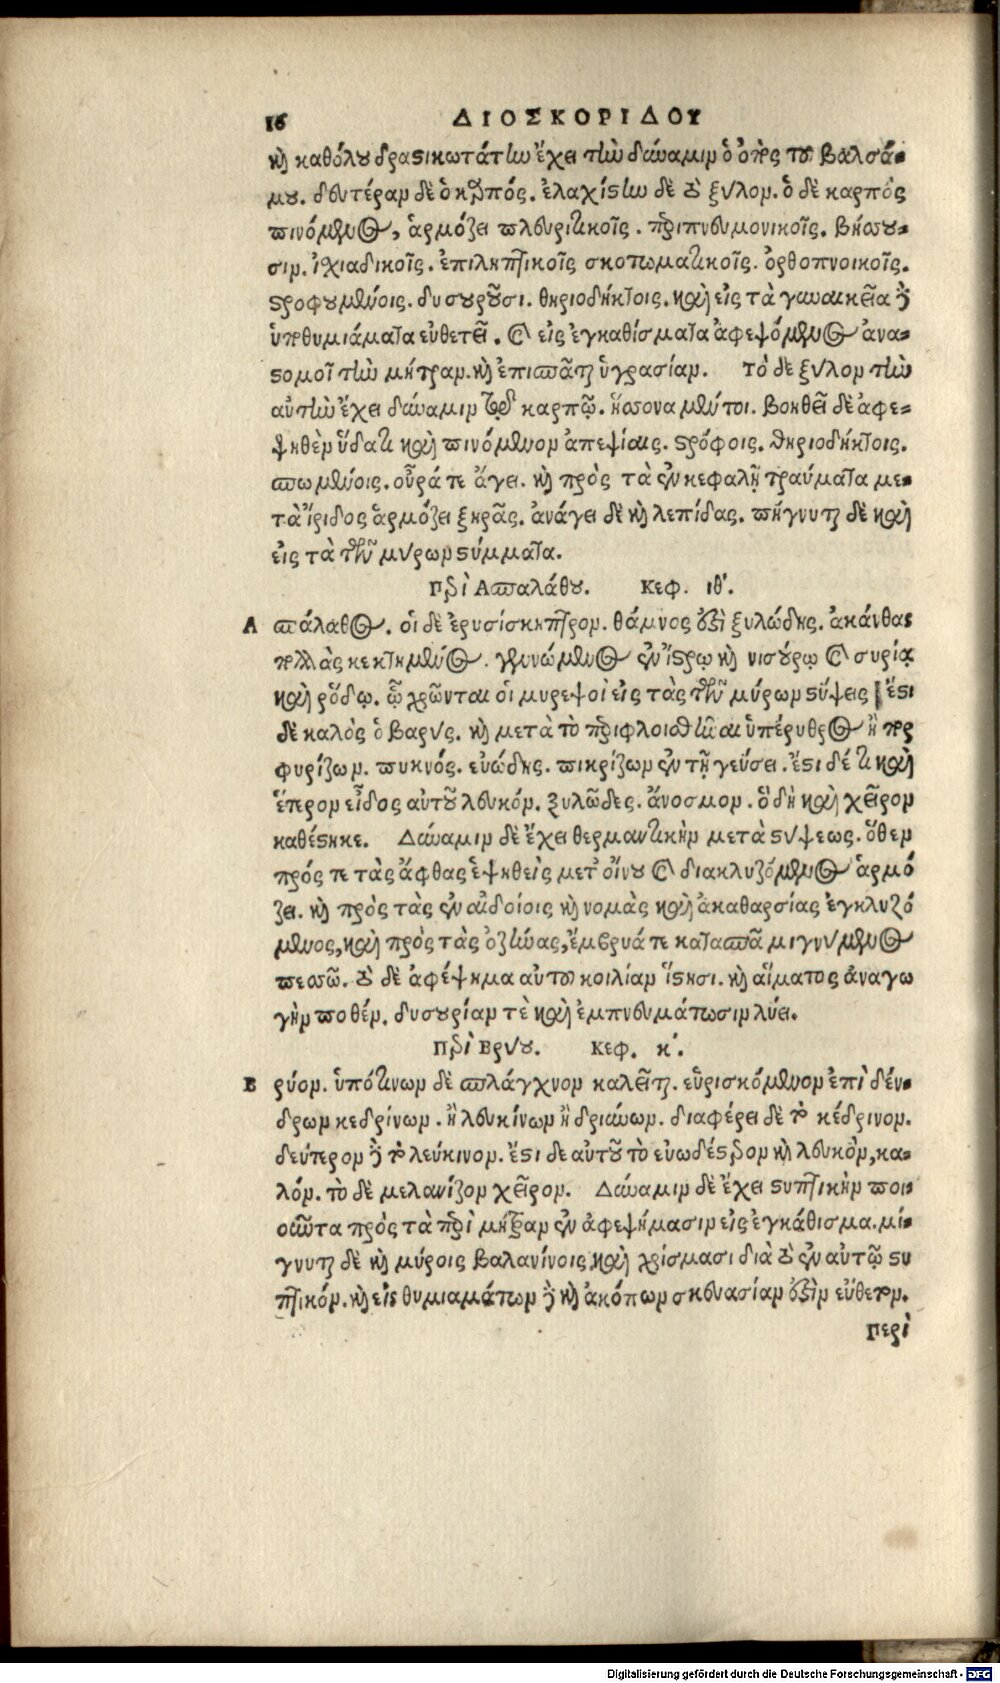 16 ΔΙΟΣΚΟΡΙΔΟΥ
καὶ καθόλου δραστικωτάτην ἔχει τὴν δύναμιν ὁ ὀπὸς τοῦ βαλσά-
μου. δευτέραν δὲ ὁ καρπός. ἐλαχίστην δὲ τὸ ξύλον. ὁ δὲ καρπὸς
πινόμενος, ἁρμόζει πλευριτικοῖς. περιπνευμονικοῖς. βήσσου-
σιν. ἰχιαδικοῖς. ἐπιληπτικοῖς σκοτωματικοῖς. ὀρθοπνοικοῖς.
στροφουμένοις. δυσουροῦσι. θηριοδήκτοις. καὶ εἰς τὰ γυναικεῖα δὲ
ὑποθυμιάματα εὐθετεῖ. καὶ εἰς ἐγκαθίσματα ἀφεψόμενος ἀνα-
στομοῖ τὴν μήτραν. καὶ ἐπισπᾶται ὑγρασίαν. Τὸ δὲ ξύλον τὴν
αὐτὴν ἔχει δύναμιν τῷ καρπῷ. ἥσσονα μέντοι. βοηθεῖ δὲ ἀφε-
ψηθὲν ὕδατι καὶ πινόμενον ἀπεψίαις. στρόφοις. θηριοδήκτοις.
σπωμένοις. οὖρά τε ἄγει. καὶ πρὸς τὰ ἐν κεφαλῇ τραύματα με-
τὰ ἴριδος ἁρμόζει ξηρᾶς. ἀνάγει δὲ καὶ λεπίδας. πήγνυται δὲ καὶ
εἰς τὰ τῶν μύρων στύμματα.
Περὶ Ἀσπαλάθου. Κεφ. ιθ'.
Α σπάλαθος. οἱ δὲ ἐρυσίσκηπτρον. θάμνος ἐστὶ ξυλώδης. ἀκάνθας
πολλὰς κεκτημένος. γεννώμενος ἐν ἴστρῳ καὶ νισύρῳ καὶ συρίᾳ
καὶ ῥόδῳ. ᾧ χρῶνται οἱ μυρεψοὶ εἰς τὰς τῶν μύρων στύψεις ἔστι
δὲ καλὸς ὁ βαρύς. καὶ μετὰ τὸ περιφλοισθῆναι ὑπέρυθρος ἢ πορ
φυρίζων. πυκνός. εὐώδης. πικρίζων ἐν τῇ γεύσει. ἔστι δέ τι καὶ
ἕτερον εἶδος αὐτοῦ λευκόν. ξυλῶδες. ἄνοσμον. ὃ δὴ καὶ χεῖρον
καθέστηκε. Δύναμιν δὲ ἔχει θερμαντικὴν μετὰ στύψεως. ὅθεν
πρός τε τὰς ἄφθας ἑψηθεὶς μετ' οἴνου καὶ διακλυζόμενος ἁρμό
ζει. καὶ πρὸς τὰς ἐν αἰδοίοις καὶ νομὰς καὶ ἀκαθαρσίας ἐγκλυζό
μενος, καὶ πρὸς τὰς ὀζαίνας, ἔμβρυά τε κατασπᾶ μιγνύμενος
πεσσῷ. τὸ δὲ ἀφέψημα αὐτοῦ κοιλίαν ἵστησι. καὶ αἵματος ἀναγω
γὴν ποθέν. δυσουρίαν τὲ καὶ ἐμπνευμάτωσιν λύει.
Περὶ Βρύου. Κεφ. κ'.
Β ρύον. ὑπό τινων δὲ σπλάγχνον καλεῖται. εὑρισκόμενον ἐπὶ δέν-
δρων κεδρίνων. ἢ λευκίνων ἢ δρυίνων. διαφέρει δὲ τὸ κέδρινον.
δεύτερον δὲ τὸ λεύκινον. ἔστι δε αὐτοῦ τὸ εὐωδέστερον καὶ λευκὸν, κα-
λόν. τὸ δὲ μελανίζον χεῖρον. Δύναμιν δὲ ἔχει στυπτικὴν ποι-
οῦσα πρὸς τὰ περὶ μήτραν ἐν ἀφεψήμασιν εἰς ἐγκάθισμα. μί-
γνυται δὲ καὶ μύροις βαλανίνοις καὶ χρίσμασι διὰ τὸ ἐν αὐτῷ στυ
πτικόν. καὶ εἰς θυμιαμάτων δὲ καὶ ἀκόπων σκευασίαν ἐστὶν εὔθετον.
Περὶ
Digitalisierung gefördert durch die Deutsche Forschungsgemeinschaft - DFG